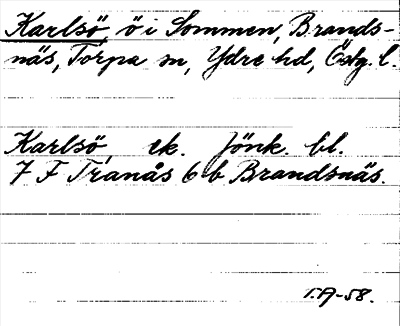 Karlsö, ö i Sommen, Brands-
näs, Torpa sn, Ydre hd, Östg. l.
Karlsö, ek. Jönk. bl.
7 F Tranås 6 b Brandsnäs.
T.A-58.